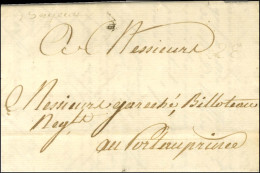 A Messieurs
Messieurs Garesché, Billoteau
Neg.ts
au Port au prince